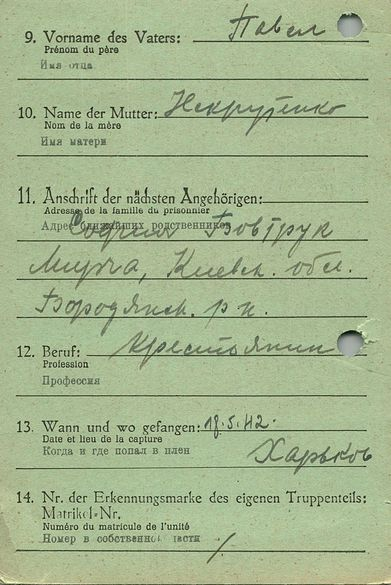 9. Vorname des Vaters: Павел
Prénom du père
Имя отца
10. Name der Mutter: Некрутенко
Nom de la mère
Имя матери
11. Anschrift der nächsten Angehörigen:
Adresse de la famille du prisonnier
Адрес ближайших родственников
София Бовтрук
Мирча, Киевск. обл.
Бородянск. р-н.
12. Beruf: крестьянин
Profession
Профессия
13. Wann und wo gefangen: 18.5.42.
Date et lieu de la capture
Когда и где попал в плен Харьков
14. Nr. der Erkennungsmarke des eigenen Truppenteils:
Matrikel-Nr.
Numéro du matricule de l'unité
Номер в собственной части /.